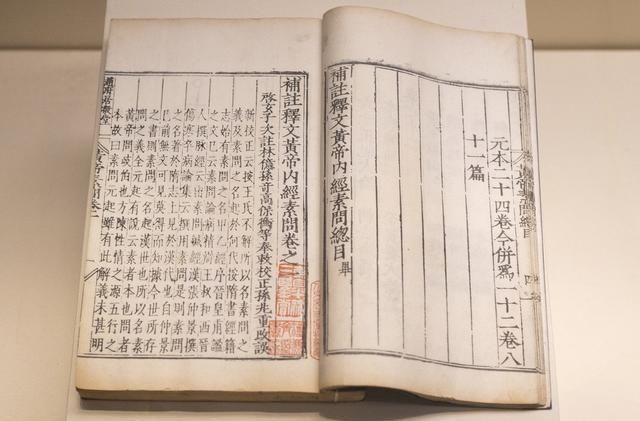 元本二十四卷今併爲一十二卷八
十一篇
補註釋文黃帝內經素問總目 畢
補註釋文黃帝內經素問卷之一
啓玄子次註林億孫奇高保衡等奉敕校正孫兆重改誤
新校正云按王氏不解所以名素問之
義及素問之名起於何代按隋書經籍
志始有素問之名甲乙經序晉皇甫謐
之文已云素問論病精辨王叔和西晉
人撰脉經云出素問鍼經漢張仲景撰
傷寒卒病論集云撰用素問是則素問
之名著於隋志上見於漢代也自仲景
已前無文可見莫得而知據今世所存
之書則素問之名起漢世也所以名素
問之義全元起有說云素者本也問者
黃帝問岐伯也方陳性情之源五行之
本故曰素問元起雖有此解義未甚明
趙府居敬堂